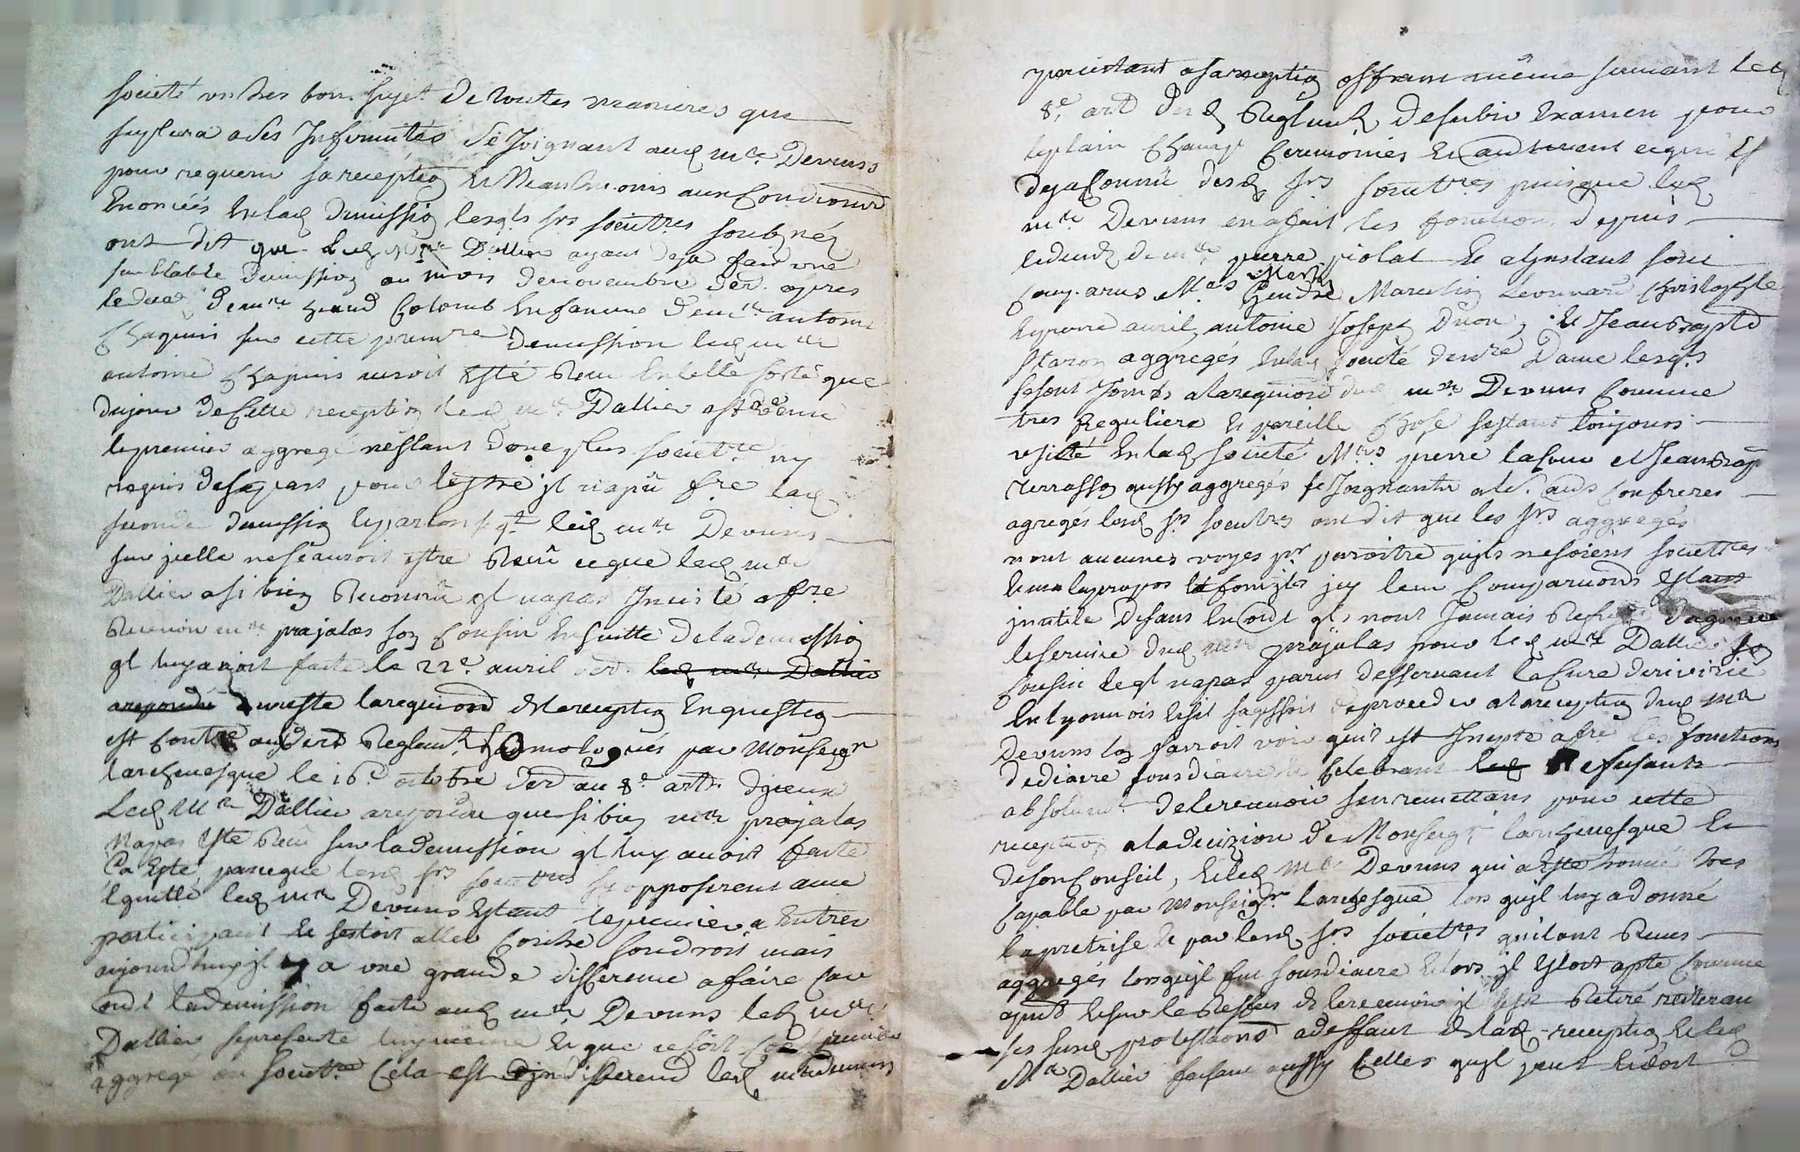 societé un tres bon sujet de toutes manieres qui
supleera a ses Infirmités se Joignant aud mre Devuns
pour requerir sa reception et Neantmoins aux Conditions
Enoncées En lad Demission lesqls srs societres soubsnés
ont dit que led mre Dallier ayant deja fait une
semblable Demission au mois de novembre der apres
le deces de mre Colomb En faveur de mre antoine
Chapuis sur cette premre Demission led mre
antoine Chapuis auroit esté Receu En telle sorte que
du jour de Cette reception led mre Dallier est
le premier aggregé n'estant donc plus societre ny
requis de sa part pour l'estre jl n'a pû fre lad
seconde demission led mre Devuns
sur jcelle ne scauroit estre Receu ce que led mre
Dallier a si bien Reconnu ql n'a pas Jnsisté a fre
Recevoir mre prajalas son Cousin En suitte de la demission
ql luy avoit faite le 22e avril der led mre Dallier
a repondu au reste la requision de la reception En question
est Contre aud Reglemt homologués par Monseigr
larchevesque le 16e octobre der au 8e art. d'yceux
Led Mre Dallier a repondu que si bien mre prajalas
N'a pas esté Receu sur la demission ql luy avoit faite
Ca esté parceque lesd srs societres s'y opposerent avec
led mre Devuns Estant le premier a Entrer
participant et c'estoit aller Contre son droit mais
aujourdhuy jl y a une grande difference a faire Car
la demission faite aud mre Devuns led mre
Dallier se presente luy meme Et que ce soit premier
aggregé ou societre Cela est Indifferend led mre devuns
persistant a sa reception offrant même suivant led
8e art desd Reglemts de subir Examen pour
le plain Chant Ceremonies Et autrement ce qui est
deja Connu desd srs societres puisque led
mre Devuns en a fait les fonctions depuis
le deces de mre pierre violat Et a l'jnstant sont
Comparus Mrs Marcelin Leonnard Christophle
Espriere avril, antoine Joseph Duon, Et Jean Baptte
aggregés En lad societé de nre Dame lesqls
se sont Joints a la requision dud mre Devuns Comme
tres Reguliere Et pareille Chose s'estant toujours
usité En lad Societé Mrs pierre laCour et Jean Bapt
Terrasson aussy aggregés se Joignants a leurs Confreres
agregés lesd srs societres ont dit que les srs aggregés
n'ont aucunes voyes pr paroitre qu'jls ne soient societres
Et mal a propos font jls jcy leur Comparuons estant
jnutile Disans En outre qls n'ont Jamais Refusé d'agreer
le service dud mre prajalas pour led mre Dallier son
Cousin leql n'a pas paru desservant la Cure de riverie
En lyonnois Et s'il s'agissoit de proceder a la reception dud mre
Devuns lon fairoit voir qu'il est Jnepte a fre les fonctions
de diacre sousdiacre et Celebrant led Refusants
absolumt de le recevoir s'en remettans pour cette
reception a la decizion de Monseigr larchevesque Et
de son Conseil, Et led mre Devuns qui a esté trouvé tres
Capable par Monseigr Larchevesque lors qu'jl luy a donné
la pretrise Et par lesd srs societres qui l'ont Receu
aggregés lorsqu'jl fut sousdiacre Et lors jl estoit apte Comme
apres Et sur le Refus de le recevoir jl s'est Retiré reiterant
ses susd protestaons a deffaut de lad reception Et led
Mre Dallier faisant aussy Celles qu'jl peut Et doit